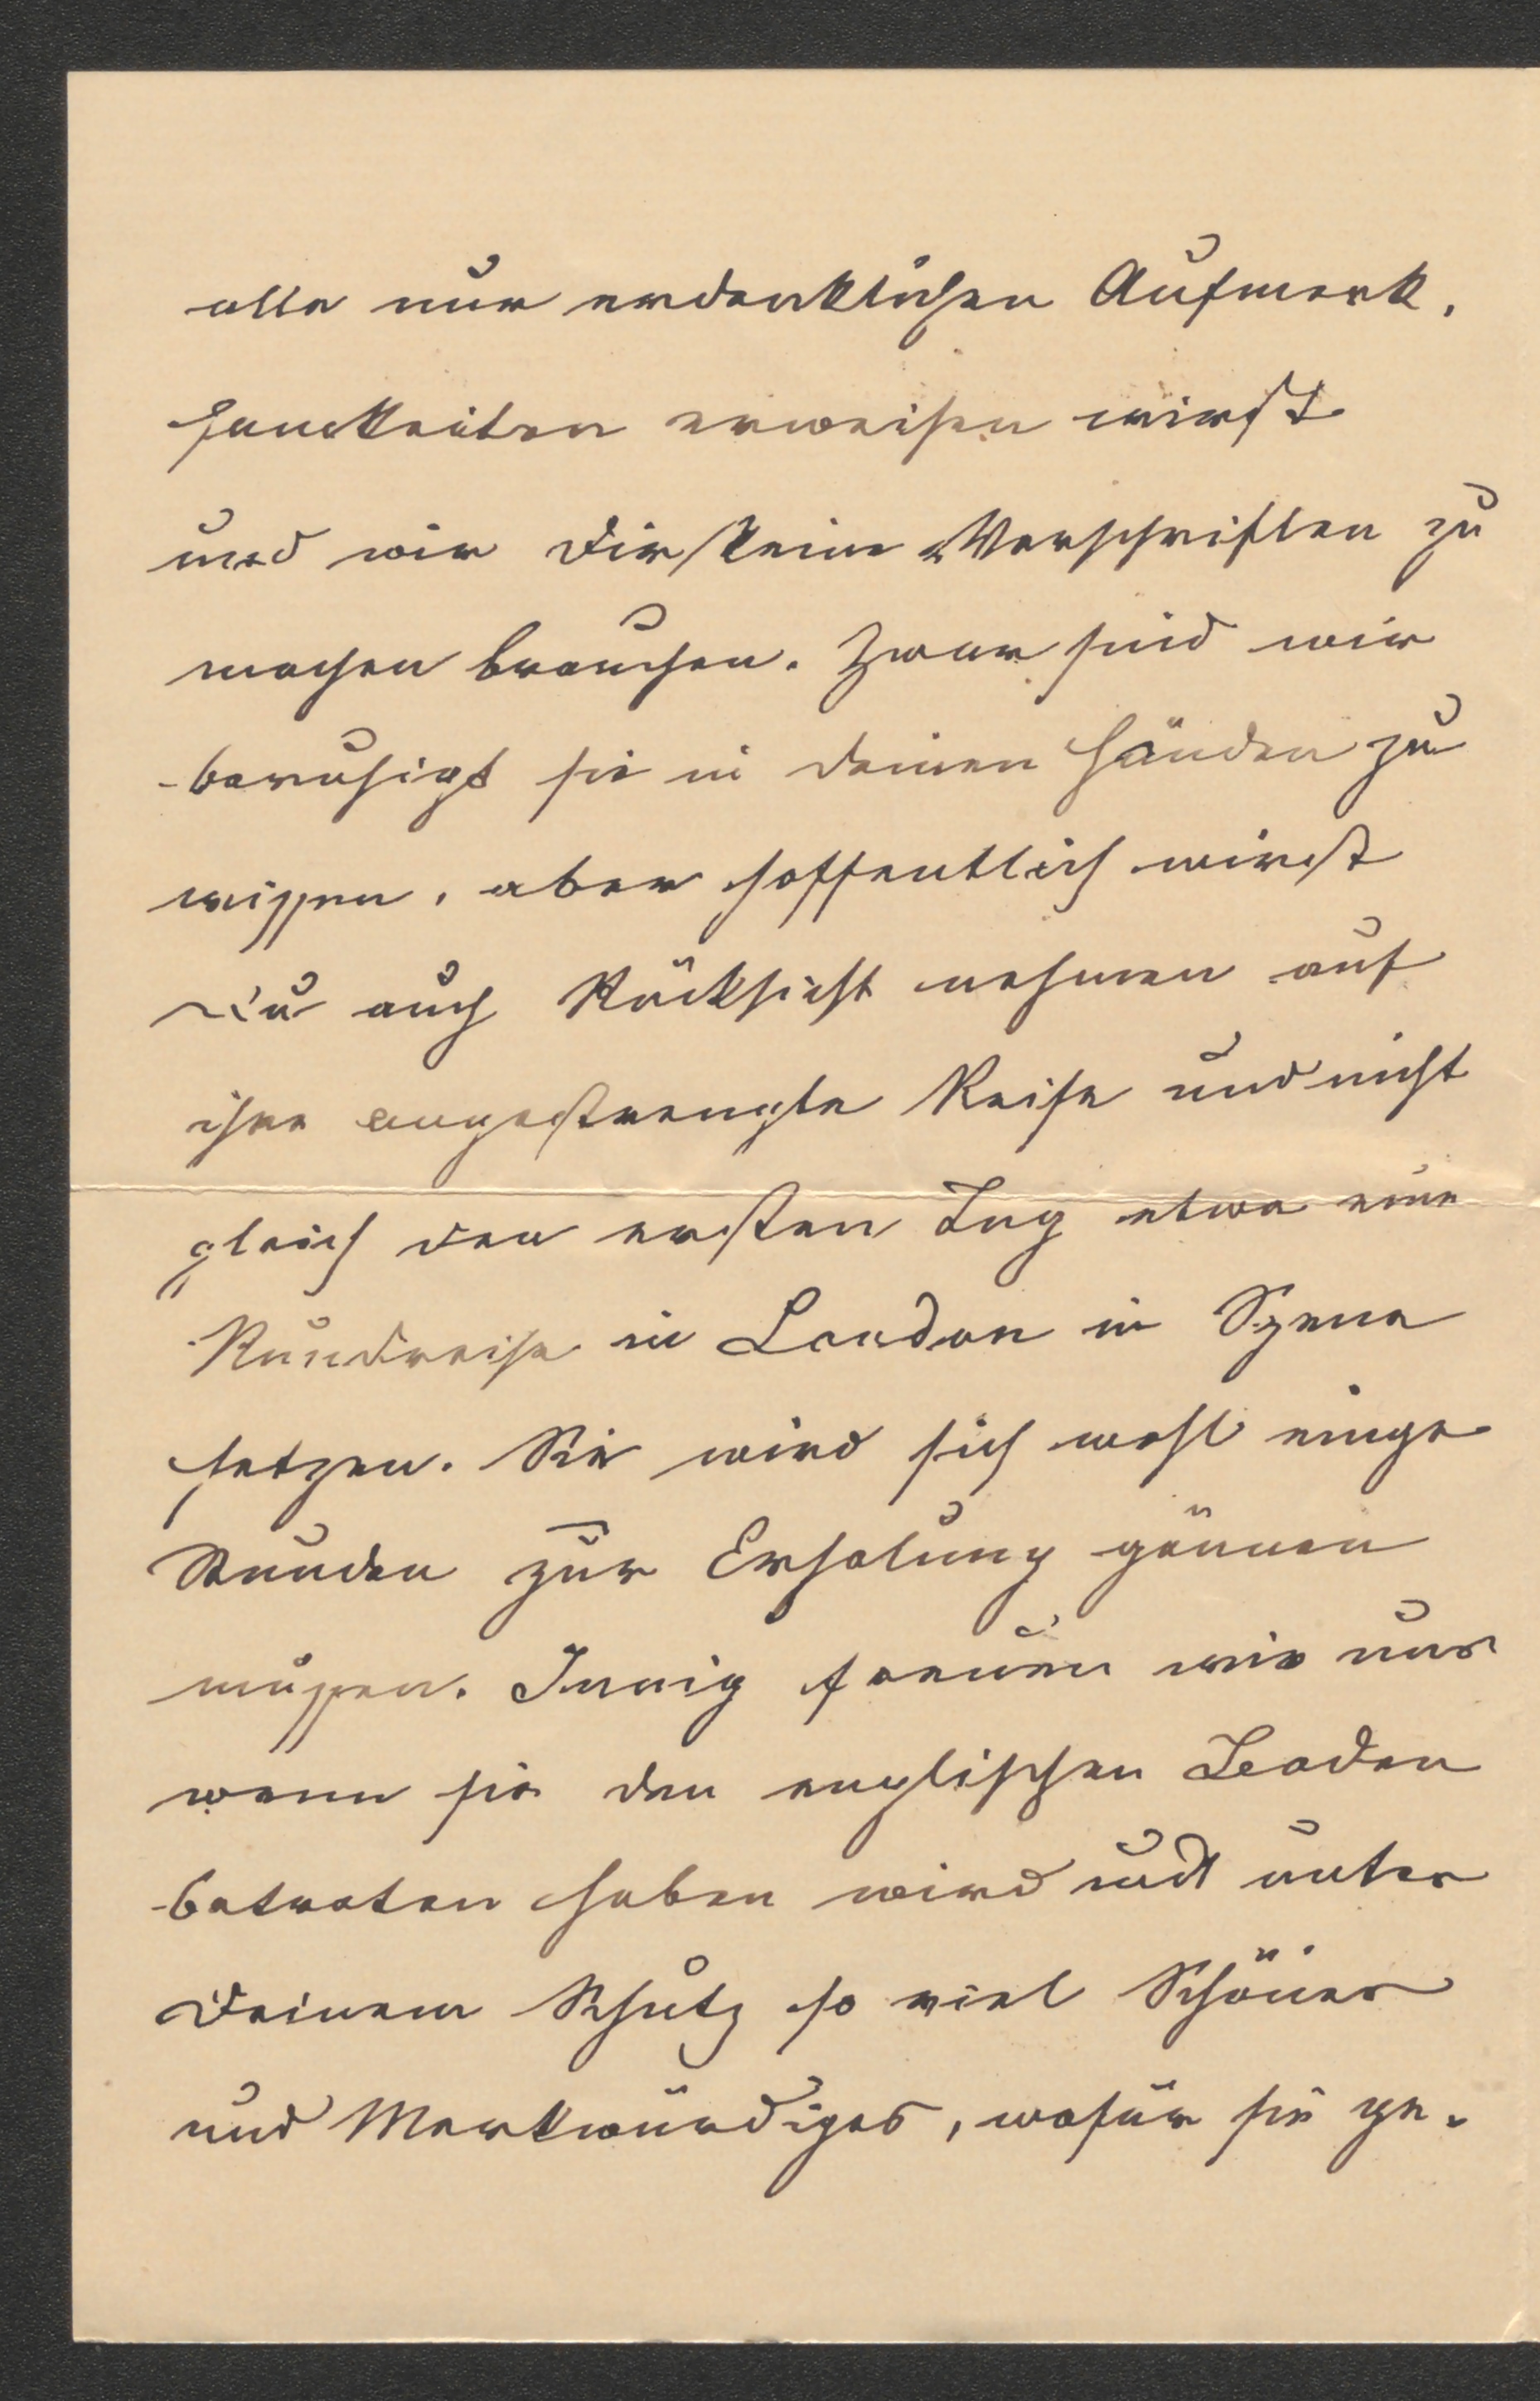 alle nur erdenklichen Aufmerk-
samkeiten erweisen wirst
und wir Dir keine Vorschriften zu
machen brauchen. Zwar sind wir
beruhigt sie in Deinen Händen zu
wissen, aber hoffentlich wirst
Du auch Rücksicht nehmen auf
ihre angestrengte Reise und nicht
gleich den ersten Tag etwa eine
Rundreise in London in Szene
setzen. Sie wird sich wohl einge
Stunden zur Erholung gönnen
müssen. Innig freuen wir uns
wenn sie den englischen Boden
betreten haben wird und unter
Deinem Schutz so viel Schönes
und Merkwürdiges, wofür sie ge-